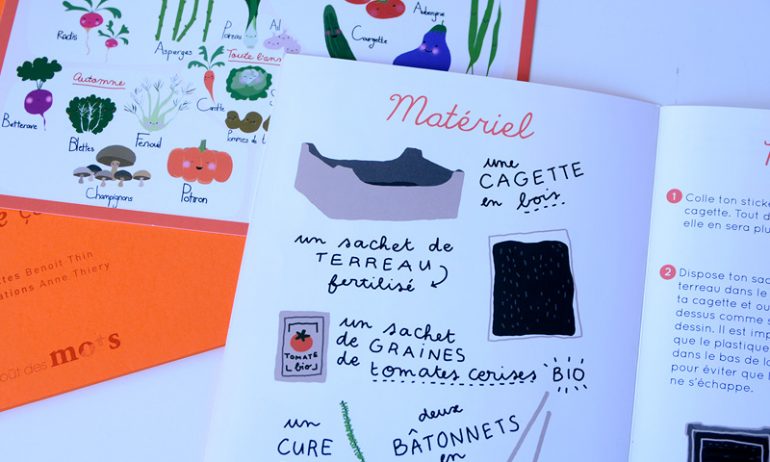 Radis
Asperges
Poireau
Ail
Courgette
Aubergine
Automne
Toute l'ann
Betterave
Blettes
Fenouil
Carotte
Pommes de t
Champignons
Potiron
Benoit Thin
Anne Thiery
des mots
Matériel
une
CAGETTE
en bois
un sachet de
TERREAU
fertilisé
TOMATE
bio
un sachet
de GRAINES
de tomates cerises BIO
un
CURE
deux
BÂTONNETS
en
1 Colle ton sticke
cagette. Tout d
elle en sera plu
2 Dispose ton sac
terreau dans le
ta cagette et ou
dessus comme s
dessin. Il est imp
que le plastique
dans le bas de la
pour éviter que l
ne s'échappe.